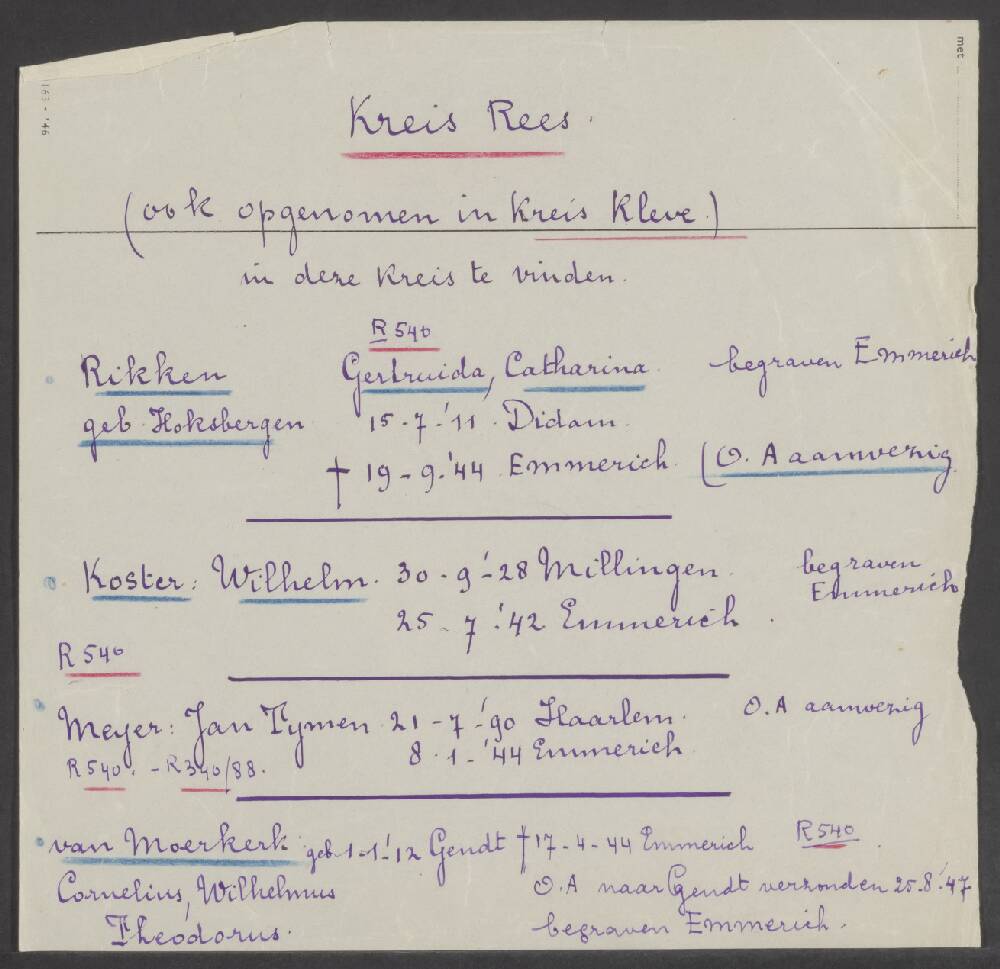 met
163 - '46
Kreis Rees.
(ook opgenomen in Kreis Kleve.)
in deze Kreis te vinden.
R 540
Rikken Gertruida, Catharina begraven Emmerich
geb. Hoksbergen 15-7-'11. Didam.
† 19-9-'44 Emmerich. (O. A aanwezig
Koster: Wilhelm. 30-9-'28 Millingen. begraven
Emmerich
25-7-'42 Emmerich.
R 540
Meyer: Jan Tymen 21-7-'90 Haarlem. O.A aanwezig
R540. - R340/88. 8-1-'44 Emmerich.
van Moerkerk geb 1-1-'12 Gendt † 17-4-44 Emmerich R540
Cornelius, Wilhelmus O.A naar Gendt verzonden 25.8.'47
Theodorus. begraven Emmerich.